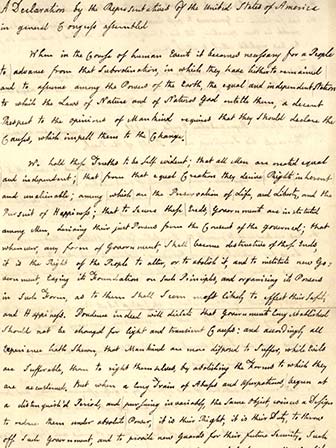 A Declaration by the Representatives of the United States of America
in general Congress assembled
When in the Course of human Events it becomes necessary for a People
to advance from that Subordination, in which they have hitherto remained
and to assume among the Powers of the Earth, the equal and independent Station
to which the Laws of Nature and of Nature's God entitle them, a decent
Respect to the opinions of Mankind requires that they Should declare the
Causes, which impell them to the Change.
We hold these Truths to be self evident; that all Men are created equal
and independent; that from that equal Creation they derive Rights inherent
and unalienable; among which are the Preservation of Life, and Liberty, and the
Pursuit of Happiness; that to Secure these Ends, Governments are instituted
among Men, deriving their just Powers from the Consent of the governed; that
whenever, any form of Government, Shall become destructive of these Ends,
it is the Right of the People to alter, or to abolish it, and to institute new Go-
vernment, laying its Foundation on Such Principles, and organizing its Powers
in Such Form, as to them Shall Seem most likely to effect their Safety
and Happiness. Prudence indeed will dictate that Governments long established
Should not be changed for light and transient Causes; and accordingly all
Experience hath Shewn, that Mankind are more disposed to Suffer, while Evils
are Sufferable, than to right themselves, by abolishing the Forms to which they
are accustomed. But when a long Train of Abuses and Usurpations, begun at
a distinguish'd Period, and pursuing invariably, the Same Object, evinces a Design
to reduce them under absolute Power, it is their Right, it is their Duty, to throw
off Such Government, and to provide new Guards for their future Security. Such